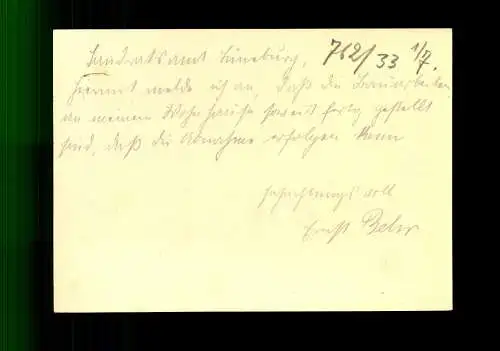 Landratsamt Lüneburg, 762/33 1/7.
Hiermit melde ich an, daß die Bauarbeiten
an meinem Wohnhause soweit fertig gestellt
sind, daß die Abnahme erfolgen kann
Hochachtungsvoll
Ernst Behr